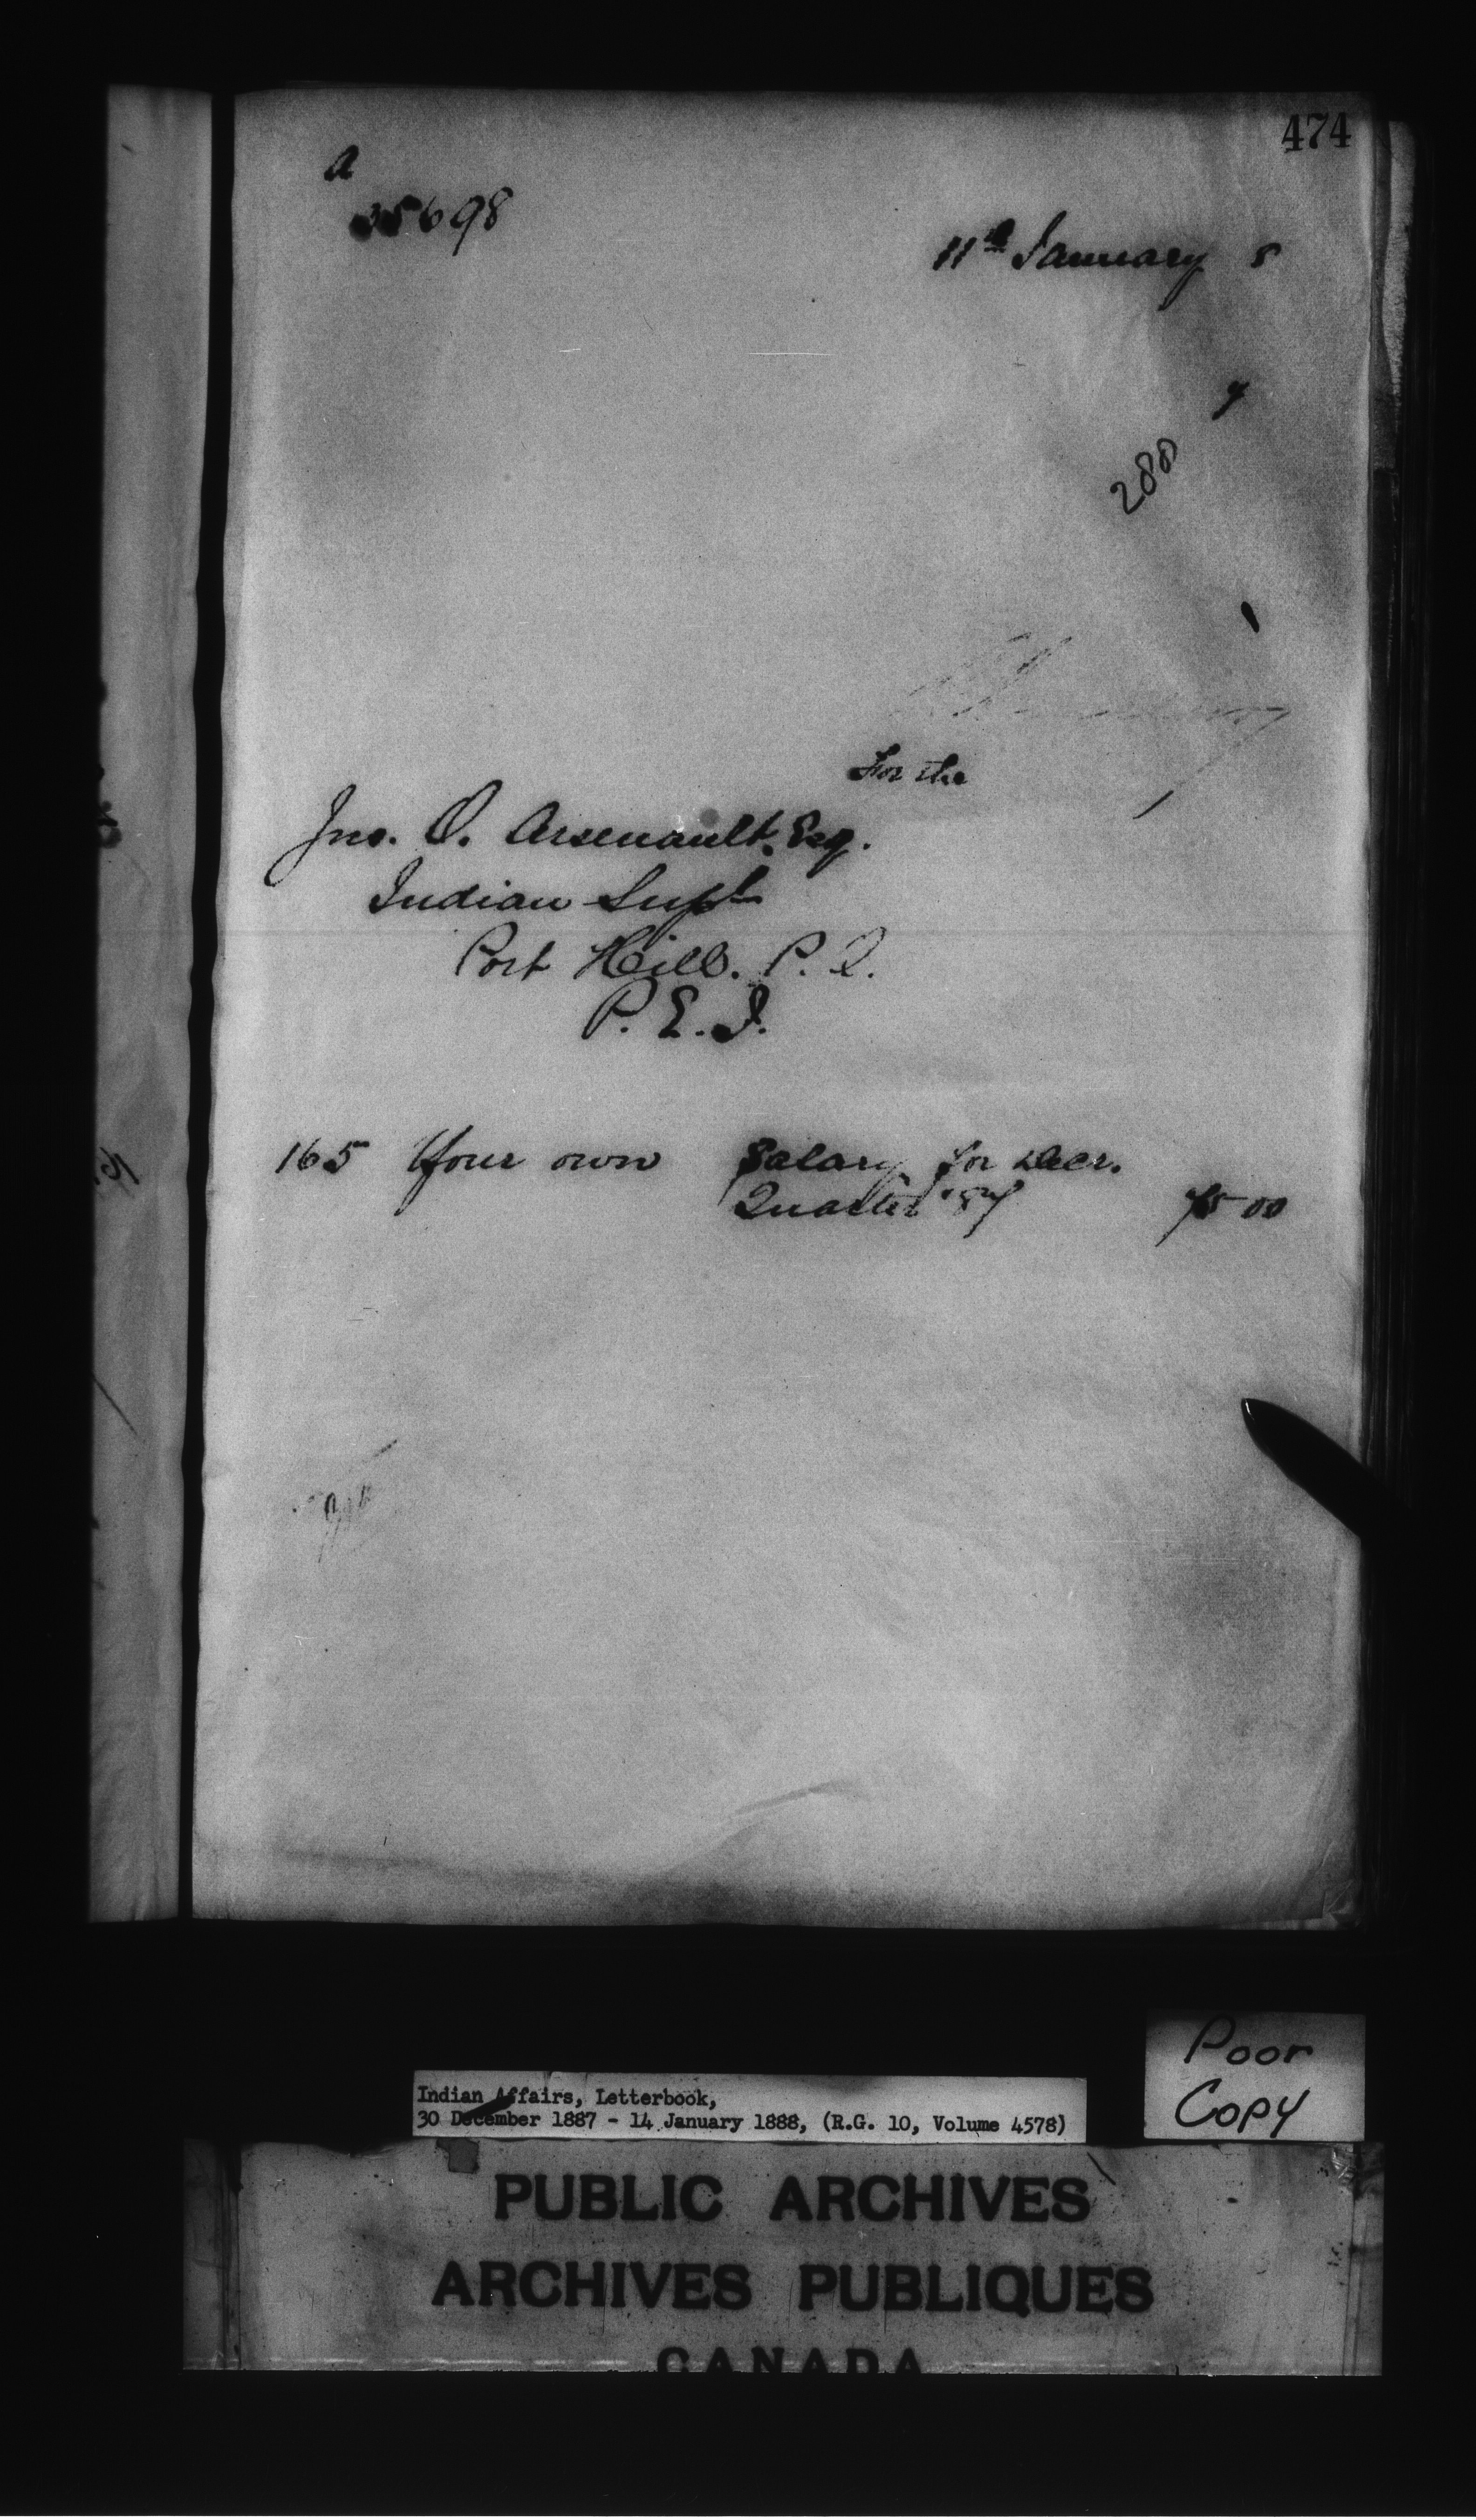 474
a
35698
11th January 8
7
288
For the
Jno. O. Arsenault. Esq.
Indian Supt
Port Hill. P. O.
P. E. I.
165 Your own Salary for Decr.
Quarter '87 75 00
Poor
Copy
Indian Affairs, Letterbook,
30 December 1887 - 14 January 1888, (R.G. 10, Volume 4578)
PUBLIC ARCHIVES
ARCHIVES PUBLIQUES
CANADA